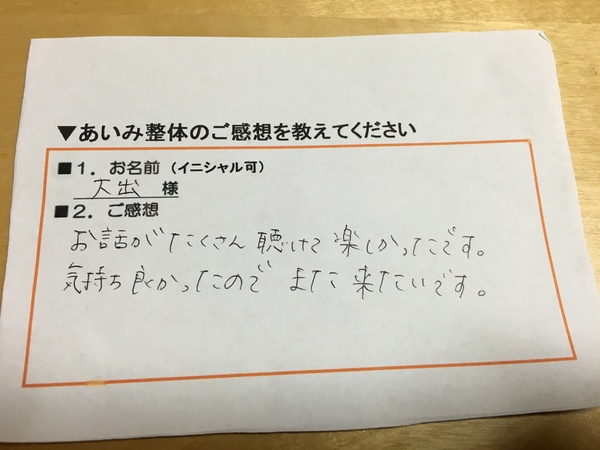 ▼あいみ整体のご感想を教えてください
■1. お名前(イニシャル可)
大出 様
■2. ご感想
お話がたくさん聴けて楽しかったです。
気持ち良かったので また来たいです。